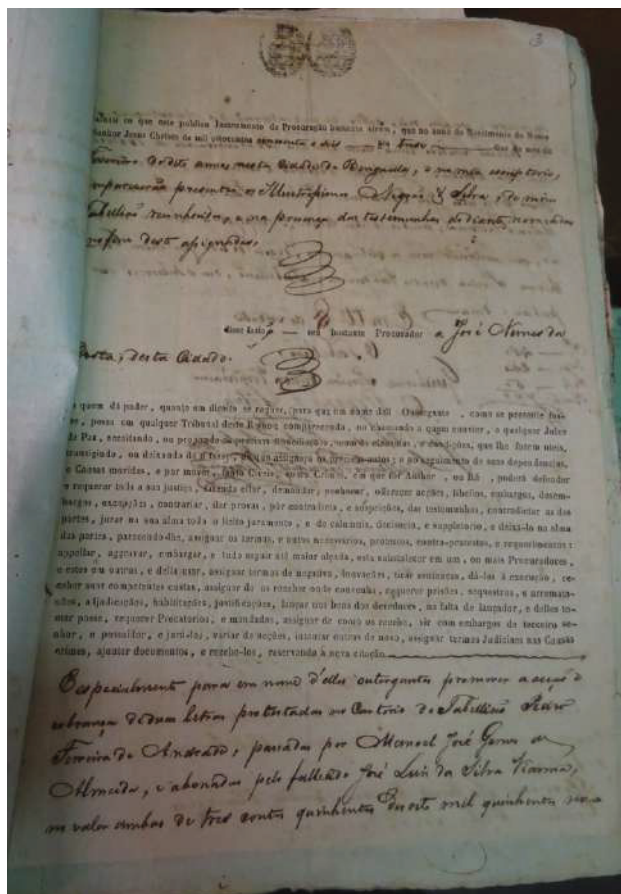 3
Saibão os que este publico Instrumento de Procuração bastante virem, que no anno do Nascimento de Nosso
Senhor Jesus Christo de mil oitocentos e dois dias do mez de
Fevereiro do dito anno nesta Cidade de Benguella, e no meu escriptorio,
presentes os Negrão & Silva, de mim
Tabellião reconhecidos, e na presença das testemunhas ao diante nomeadas
no fim deste assignadas,
disse bastante Procurador a José Nunes da
desta Cidade.
a quem dá poder, quanto em direito se requer, para que em nome delle Outorgante, como se presente
, possa em qualquer Tribunal deste Reino comparecendo, ou chamando a quem convier, a qualquer Juizo
de Paz, excitando, ou propondo as precisas conciliações, com as clausulas, e condições, que lhe forem uteis,
transigindo, ou deixando de o fazer, do que assignará os precisos autos; e no seguimento de suas dependencias,
e Causas movidas, e por mover, tanto Civeis, como Crimes, em que for Author, ou Ré, poderá defender
e requerer toda a sua justiça, fazendo citar, demandar, penhorar, offerecer acções, libellos, embargos, desem-
bargos, excepções, contrariar, dar provas, por contradicta, e suspeições, dar testemunhas, contradictar as das
partes, jurar na sua alma todo o licito juramento, e de calumnia, decisorio, e suppletorio, e deixa-lo na alma
das partes, parecendo-lhe, assignar os termos, e autos necessarios, protestos, contra-protestos, e requerimentos:
appellar, aggravar, embargar, e tudo seguir até maior alçada, esta substabelecer em um, ou mais Procuradores,
e estes em outros, e della usar, assignar termos de negativa, louvações, tirar sentenças, dá-las á execução, re-
ceber suas competentes custas, assignar de os receber onde convenha, requerer prisões, sequestros, e arremata-
ções, adjudicações, habilitações, justificações, lançar nos bens dos devedores, na falta de lançador, e delles to-
mar posse, requerer Precatorios, e mandados, assignar de como os recebe, vir com embargos de terceiro se-
nhor, e possuidor, e jurá-los, variar de acções, intentar outras de novo, assignar termos Judiciaes nas Causas
crimes, ajuntar documentos, e recebe-los, reservando á nova citação.
E especialmente para em nome d'elles outorgantes promover a acção de
cobrança de duas letras protestadas no Cartorio do Tabellião Pedro
Ferreira de Andrade, passadas por Manoel José Gomes de
Almeida, e abonadas pelo fallecido José Luis da Silva Vianna,
no valor ambas de tres contos quinhentos mil quinhentos